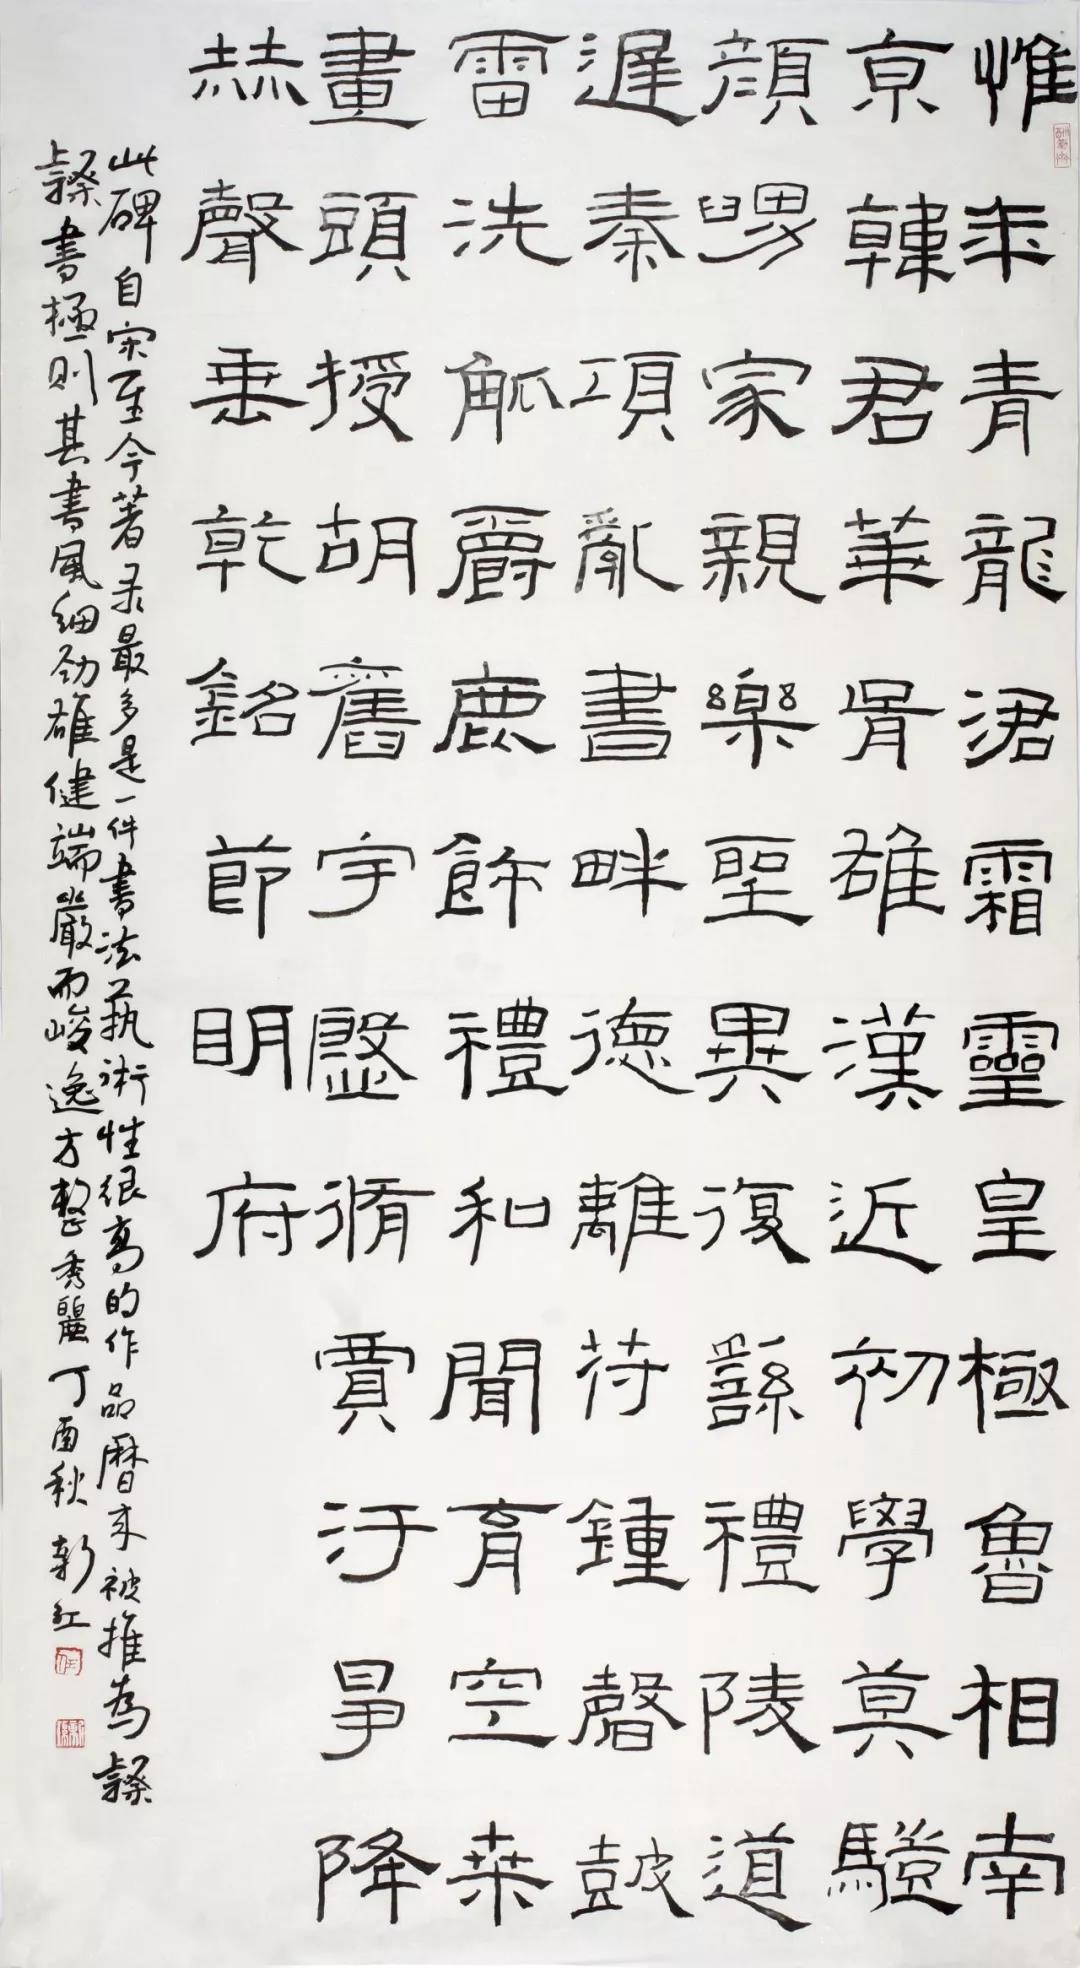 惟年青龍涒霜靈皇極魯相南
亰韓君華胥雄漢近初學莫
顏舅家親樂聖異復繇禮陵道
遲秦項亂書畔德離苻鍾磬鼓
雷洗觚爵鹿飾禮和聞育空桒
畫頭授胡舊宇歷脩賈汙爭降
赫聲垂乾銘節眀府
此碑自宋至今著录最多是一件書法藝術性很高的作品曆来被推為隸
隸書極則其書風細劲雄健端嚴而峻逸方整秀麗丁酉秋 新红